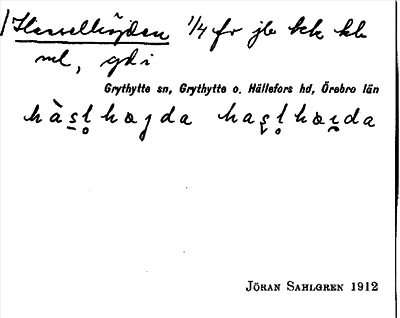 Hasselhöjden 1/4 fr jb bck kb
ml, gd i
Grythytte sn, Grythytte o. Hällefors hd, Örebro län
hàsl̥hæjda hasl̥hæɪda
JÖRAN SAHLGREN 1912